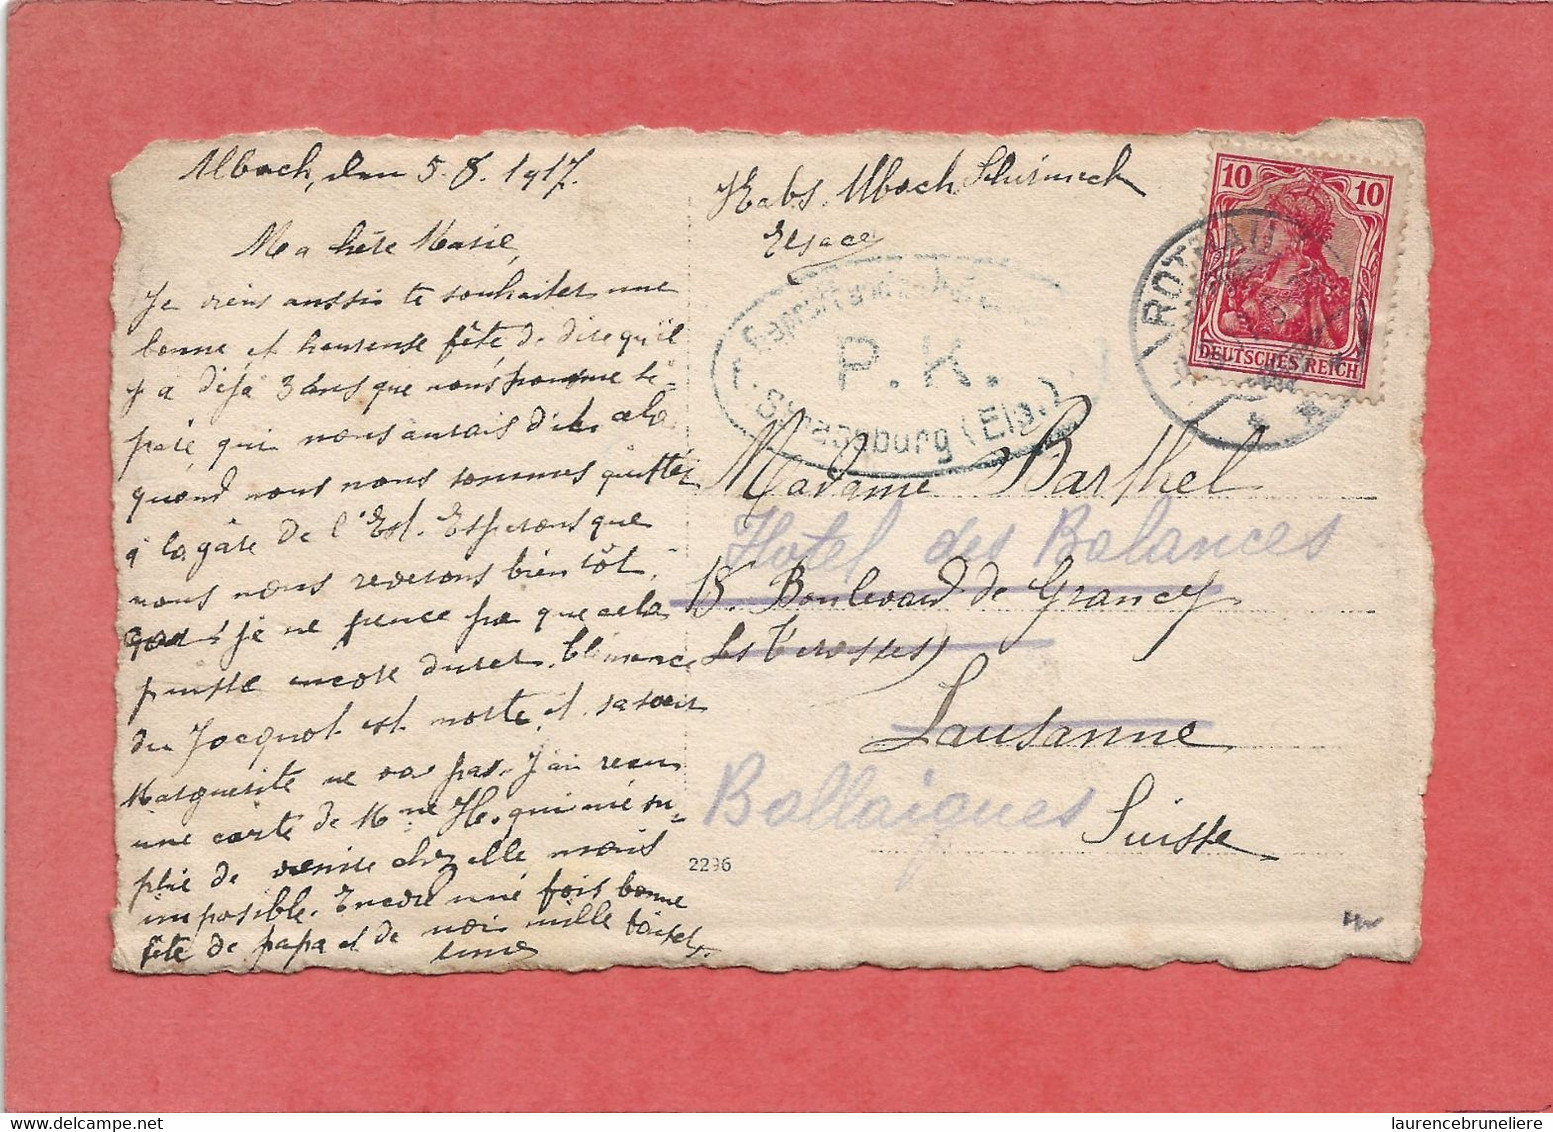 Albach, den 5.8.1917.
Ma chère Marie,
Je viens aussi te souhaiter une
bonne et heureuse fête de dire qu'il
y a déjà 3 ans que nous sé-
paré, qui nous aurais dit cela
quand nous nous sommes quitter
à la gâre de l'Est. Esperons que
nous nous reverons bientôt,
car je ne pence pas que cela
puisse encore durer. Clémence
du Jacquot est morte et sa sœur
Marguerite ne va pas. J'ai recu
une carte de Mme H. qui m'é su-
plié de venire chez elle mais
impossible. Encore une fois bonne
fête de papa et de moi mille baisers.
Eug. Albach Schirmeck
Elsace
P.K.
Strassburg (Els.)
ROTHAU
10 10
DEUTSCHES REICH
Madame Barthel
Hotel des Balances
15. Boulevard de Grancy
Lausanne
Ballaigues
Suisse
2296
laurencebruneliere